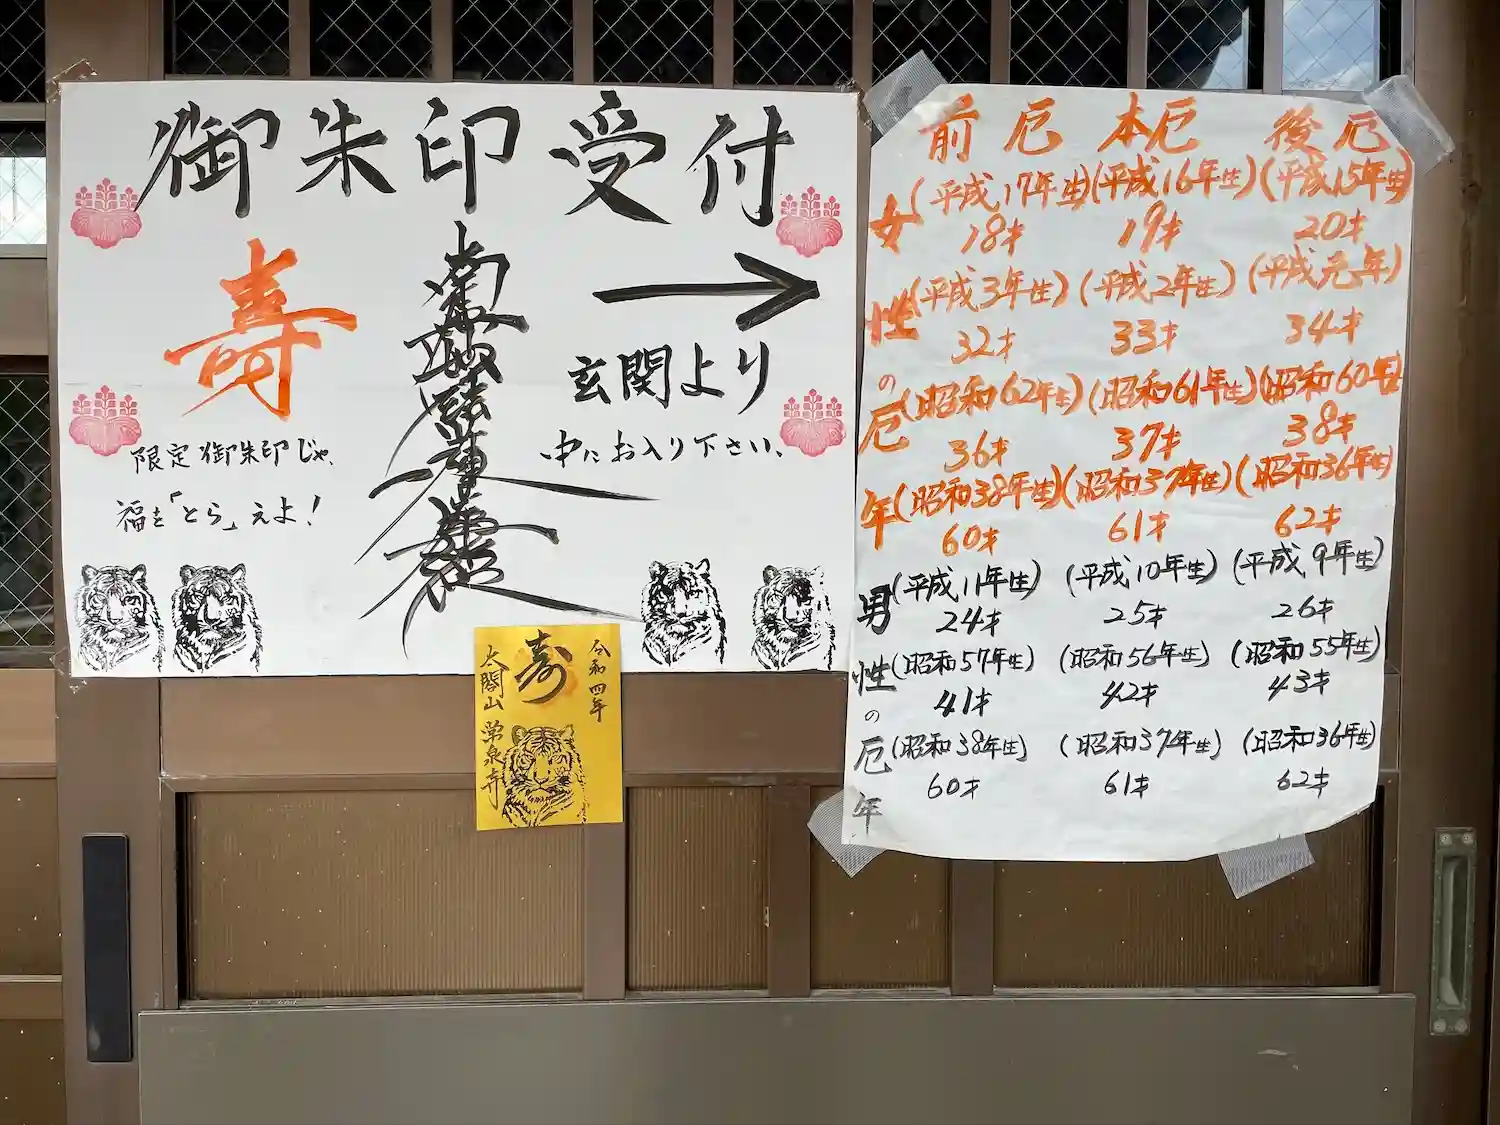 御朱印受付
寿
南無妙法蓮華経
玄関より
中にお入り下さい、
限定御朱印じゃ、
福を「とら」えよ!
令和四年
寿
太閤山
栄泉寺
前厄 本厄 後厄
女性の厄年
(平成17年生) (平成16年生) (平成15年生)
18才 19才 20才
(平成3年生) (平成2年生) (平成元年)
32才 33才 34才
(昭和62年生) (昭和61年生) (昭和60年生)
36才 37才 38才
(昭和38年生) (昭和37年生) (昭和36年生)
60才 61才 62才
男性の厄年
(平成11年生) (平成10年生) (平成9年生)
24才 25才 26才
(昭和57年生) (昭和56年生) (昭和55年生)
41才 42才 43才
(昭和38年生) (昭和37年生) (昭和36年生)
60才 61才 62才